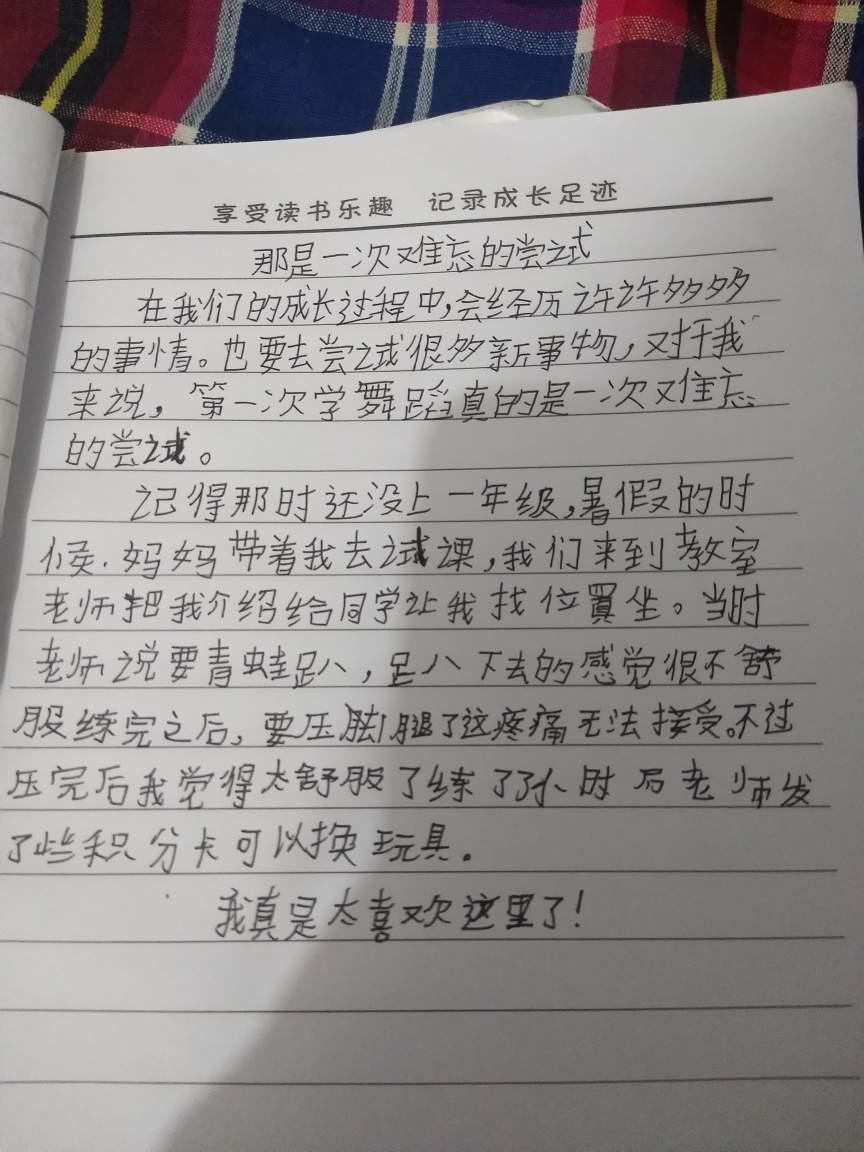 享受读书乐趣 记录成长足迹
那是一次难忘的尝试
在我们的成长过程中,会经历许许多多
的事情。也要去尝试很多新事物,对于我
来说,第一次学舞蹈真的是一次难忘
的尝试。
记得那时还没上一年级,暑假的时
候.妈妈带着我去试课,我们来到教室
老师把我介绍给同学让我找位置坐。当时
老师说要青蛙趴,趴下去的感觉很不舒
服练完之后,要压脚腿了这疼痛无法接受。不过
压完后我觉得太舒服了练了小时后老师发
了些积分卡可以换玩具。
我真是太喜欢这里了!